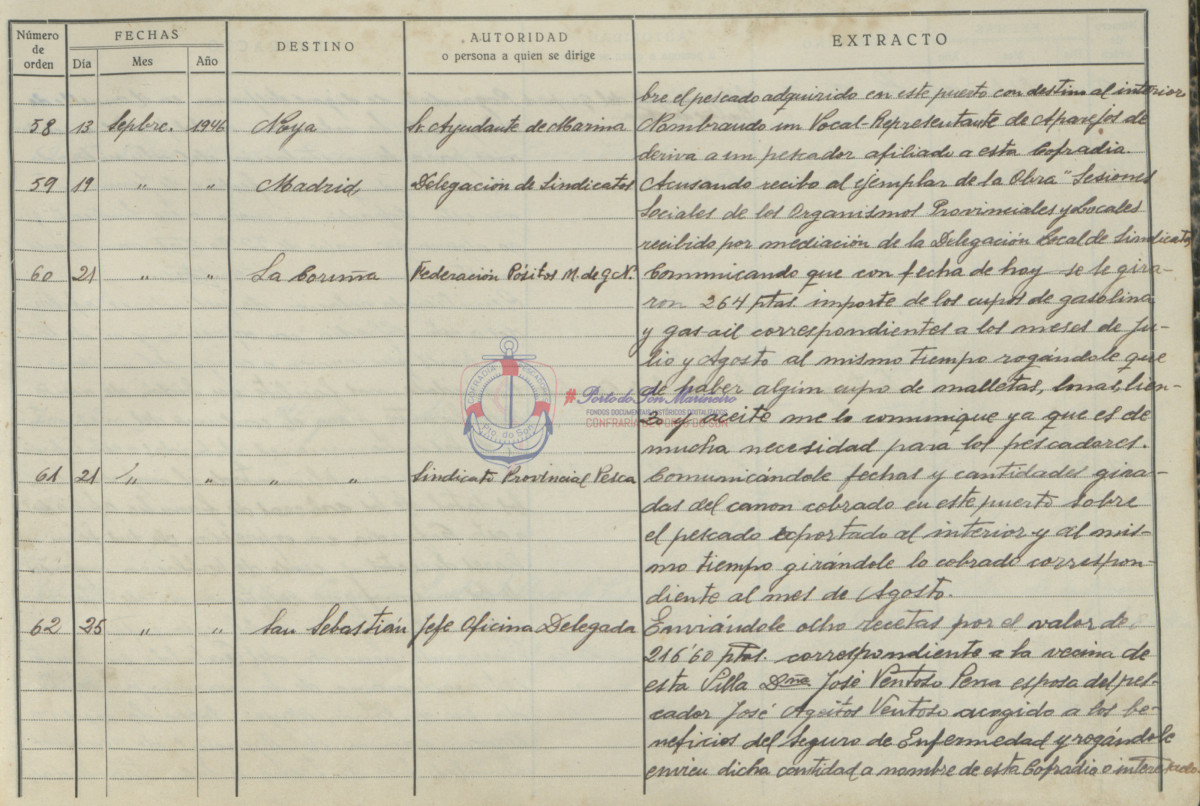 Número de orden
FECHAS
Día
Mes
Año
DESTINO
AUTORIDAD
o persona a quien se dirige
EXTRACTO
bre el pescado adquirido en este puerto con destino al interior
58 13 Sepbre. 1946 Noya Sr. Ayudante de Marina Nombrando un Vocal-Representante de Aparejos de
deriva a un pescador afiliado a esta Cofradia.
59 19 " " Madrid Delegación de Sindicatos Acusando recibo al ejemplar de la Obra "Sesiones
Sociales de los Organismos Provinciales y Locales
recibido por mediación de la Delegación Local de Sindicatos
60 21 " " La Coruña Federación Pósitos M. de G. N. Comunicando que con fecha de hoy se le gira-
ron 264 ptas. importe de los cupos de gasolina
y gas-oil correspondientes a los meses de Ju-
lio y Agosto al mismo tiempo rogándole que
de haber algún cupo de malletas, lonas, lien-
zo y aceite me lo comunique ya que es de
mucha necesidad para los pescadores.
61 21 " " " " Sindicato Provincial Pesca Comunicándole fechas y cantidades gira-
das del canon cobrado en este puerto sobre
el pescado exportado al interior y al mis-
mo tiempo girándole lo cobrado correspon-
diente al mes de Agosto.
62 25 " " San Sebastián Jefe Oficina Delegada Enviándole ocho recetas por el valor de
216'60 ptas. correspondiente a la vecina de
esta Villa Dña. José Ventoso Pena esposa del pes-
cador José Ageitos Ventoso acogido a los be-
neficios del Seguro de Enfermedad y rogándole
envieu dicha cantidad a nombre de esta Cofradia o interesado
COFRADIA PESCADORES
Pto. do Son
#Porto do Son Marineiro
FONDOS DOCUMENTAIS HISTÓRICOS DIXITALIZADOS
CONFRARÍA DE PORTO DO SON